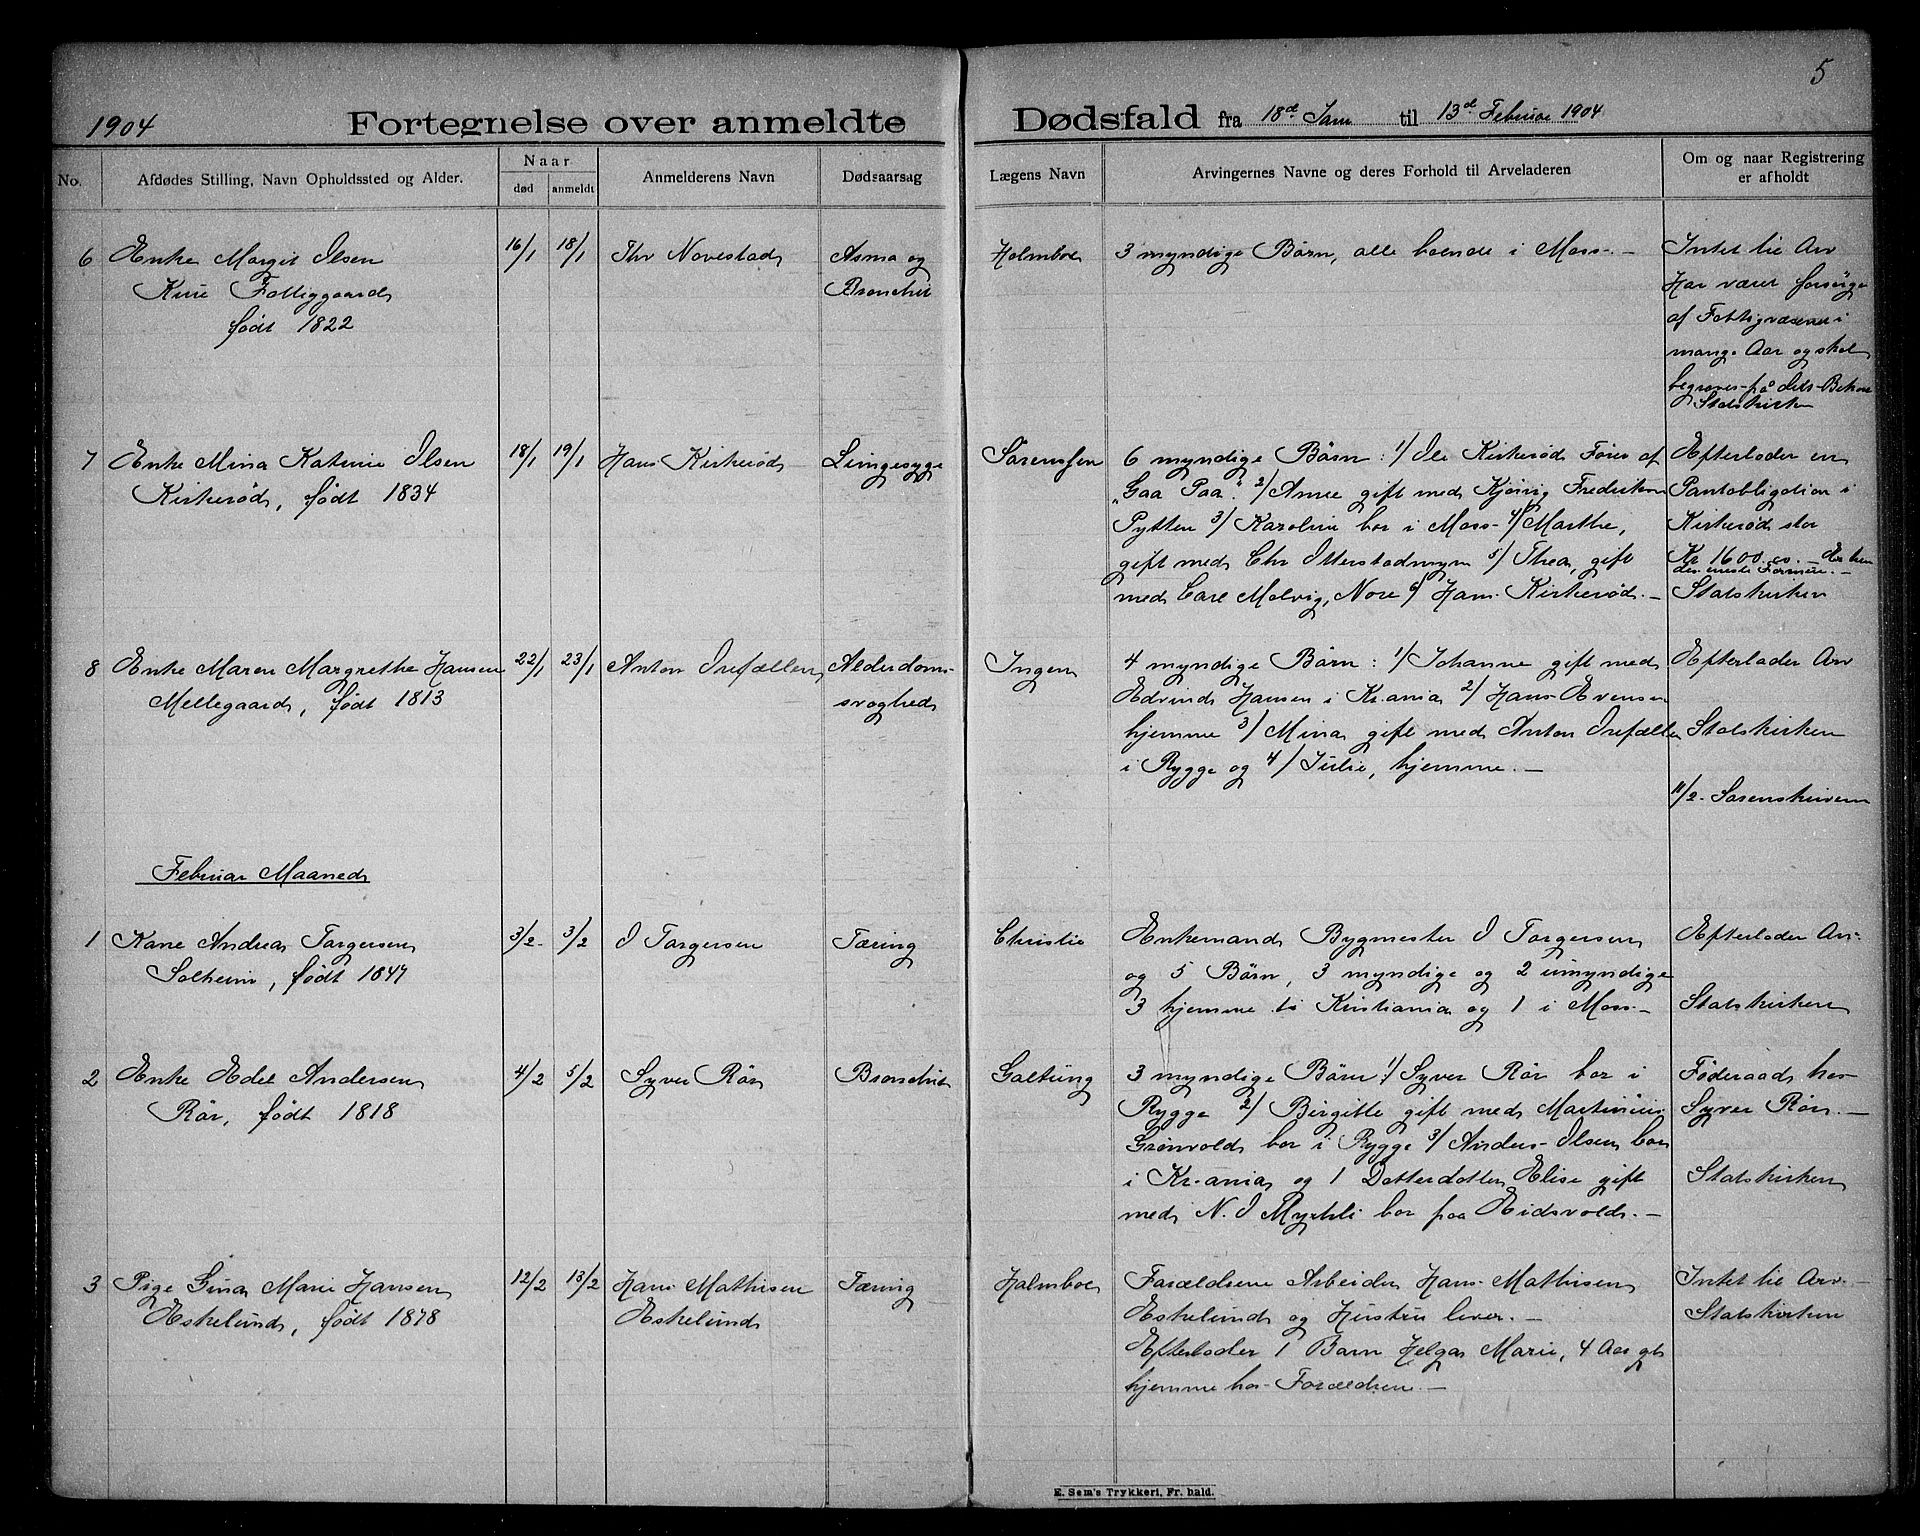 5
1904 Fortegnelse over anmeldte Dødsfald fra 18de Jan til 13de Februar 1904
No. Afdødes Stilling, Navn Opholdssted og Alder. Naar død anmeldt Anmelderens Navn Dødsaarsag Lægens Navn Arvingernes Navne og deres Forhold til Arveladeren Om og naar Registrering er afholdt
6 Enke Margit Olsen 16/1 18/1 Thv Novestad Asma og Holmboe 3 myndige Børn, alle boende i Moss.— Intet til Arv
Kure Fattiggaard Bronchit Har været forsørge
født 1822 af Fattigvæsenet i
mange Aar og skal
begraves på dets
Statskirken
7 Enke Mina Katrine Olsen 18/1 19/1 Hans Kirkerød Lungesyge Sørenssen 6 myndige Børn: 1/ Ole Kirkerød Fører af Efterlader en
Kirkerød, født 1834 "Gaa Paa". 2/ Anne gift med Kjøvig Fredriksen Pantobligation i
Pytten 3/ Karoline bor i Moss- 4/ Marthe, Kirkerød stor
gift med Chr Otterstadmyrn 5/ Thea, gift Kr 1600.00.—
med Carl Molvig, Nore 6/ Hans Kirkerød.— Statskirken
8 Enke Maren Margrethe Hansen 22/1 23/1 Anton Orefællen Alderdoms- Ingen 4 myndige Børn: 1/ Johanne gift med Efterlader Arv
Mellegaard, født 1813 svaghed Edvind Hansen i Kr.ania 2/ Hans Evensen
hjemme 3/ Mina gift med Anton Orefællen Statskirken
i Rygge og 4/ Julie, hjemme.—
11/2. Sorenskriveren
Februar Maaned
1 Kone Andrea Torgersen 3/2- 3/2 O Torgersen Tæring Christie Enkemand Bygmester O Torgersen Efterlader Arv-
Solheim, født 1847 og 5 Børn, 3 myndige og 2 umyndige
3 hjemme to Kristiania og 1 i Moss- Statskirken
2 Enke Edel Andersen 4/2 5/2 Syver Rør Bronchit Galtung 3 myndige Børn: 1/ Syver Rør bor i Føderaad hos
Rør, født 1818 Rygge 2/ Birgitte gift med Martinius Syver Rør.—
Grønvold bor i Rygge 3/ Anders Olsen bor
i Kr.ania og 1 Datterdatter Elise gift Statskirken
med N. O Myrhli bor paa Eidsvold.—
3 Pige Gina Marie Hansen 12/2 13/2 Hans Mathisen Tæring Holmboe Forældrene Arbeider Hans Mathisen Intet til Arv.—
Eskelund, født 1878 Eskelund Eskelund og Hustru lever.— Statskirken
Efterlader 1 Barn Helga Marie, 4 Aar gl
hjemme hos Forældrene.—
E. Sem's Trykkeri, Fr. hald.